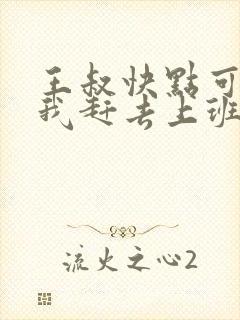 王叔快點可
我赶去上班
流火之心2